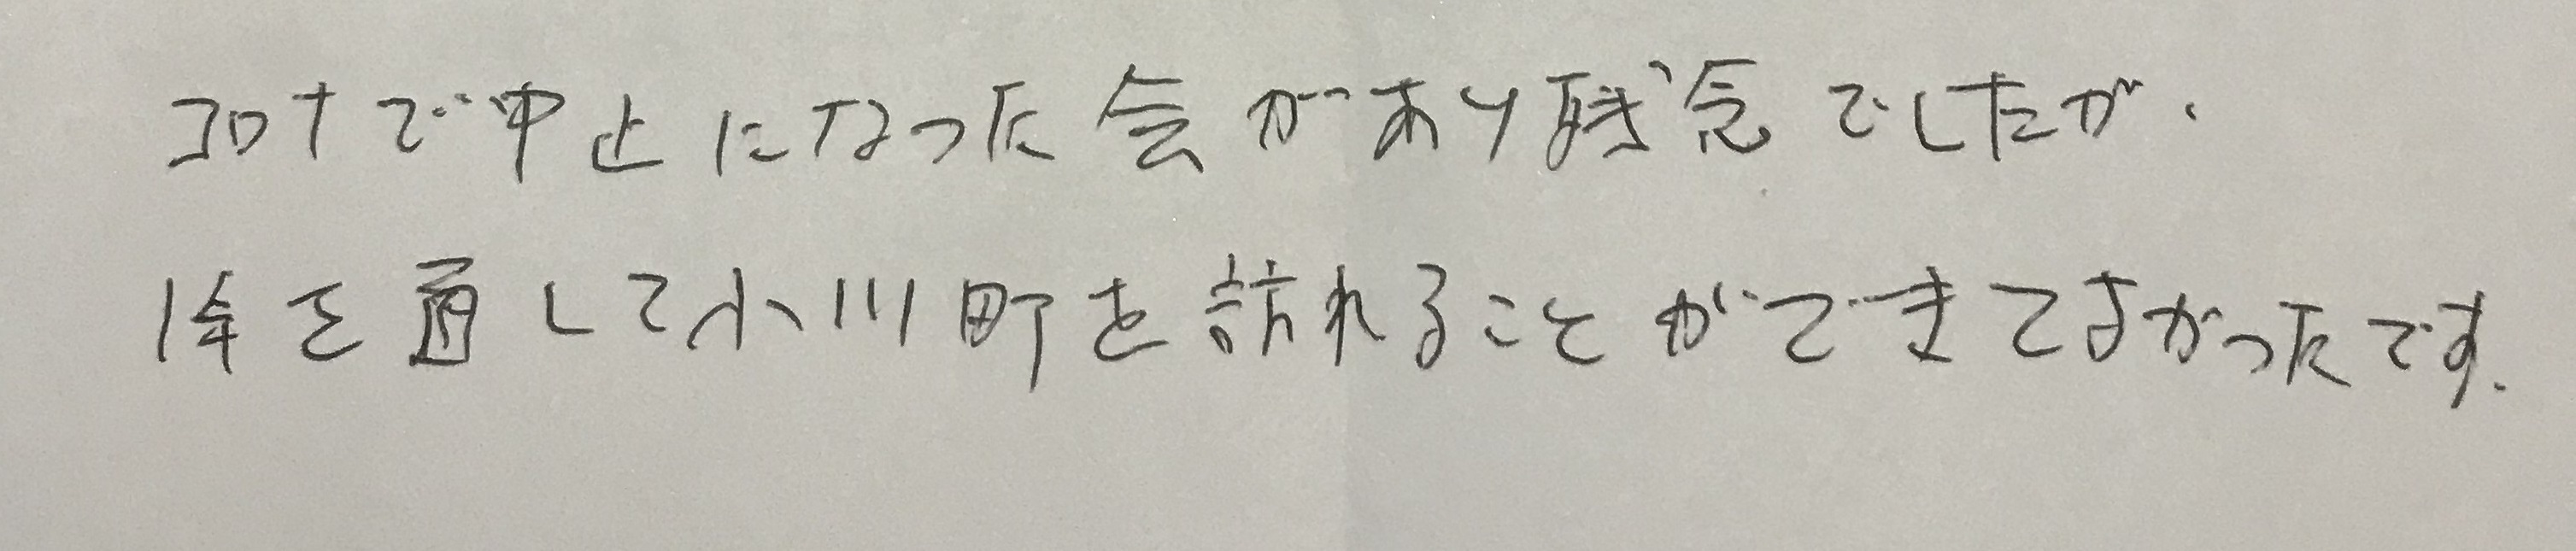 コロナで中止になった会があり残念でしたが、
1年を通して小川町を訪れることができてよかったです。